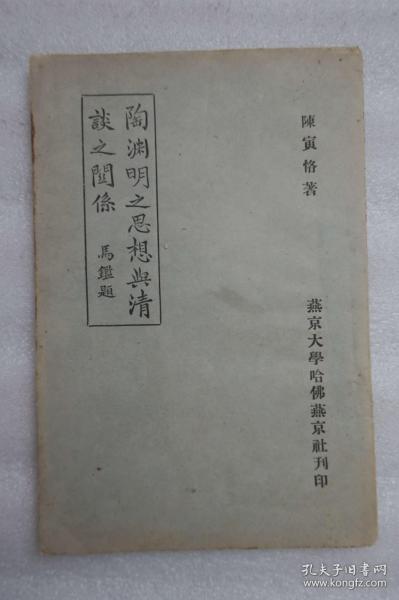 陳寅恪著
陶渊明之思想與清
談之関係
馬鑑題
燕京大學哈佛燕京社刊印
孔夫子旧书网
www.kongfz.com